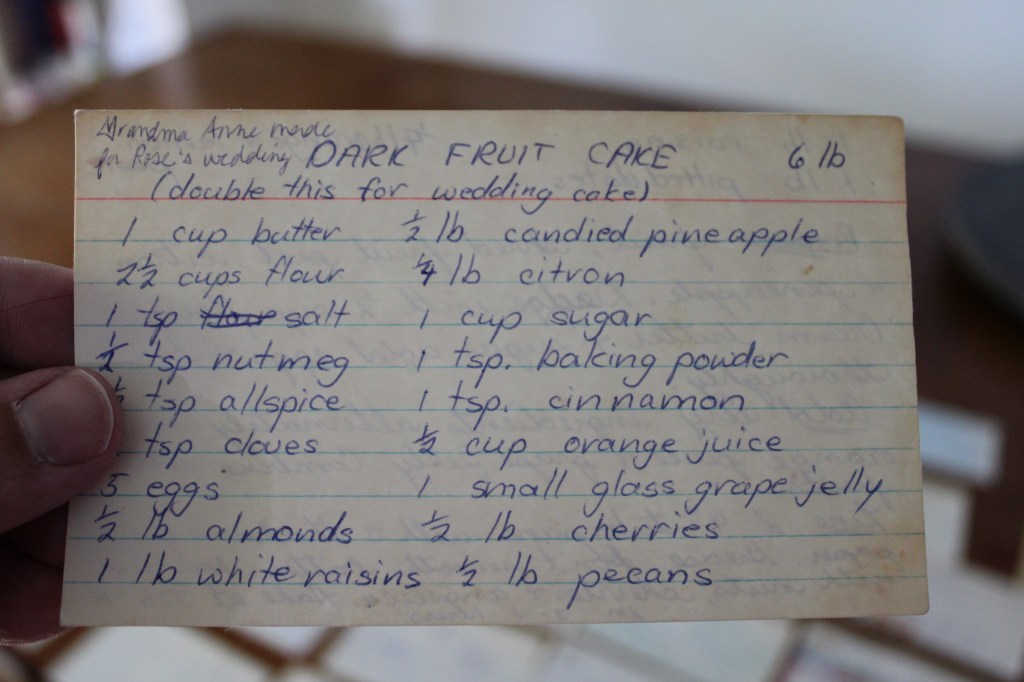 Grandma Anne made
for Rose's wedding DARK FRUIT CAKE 6 lb
(double this for wedding cake)
1 cup butter ½ lb candied pineapple
2½ cups flour ¼ lb citron
1 tsp flour salt 1 cup sugar
½ tsp nutmeg 1 tsp. baking powder
tsp allspice 1 tsp. cinnamon
tsp cloves ½ cup orange juice
5 eggs 1 small glass grape jelly
½ lb almonds ½ lb cherries
1 lb white raisins ½ lb pecans